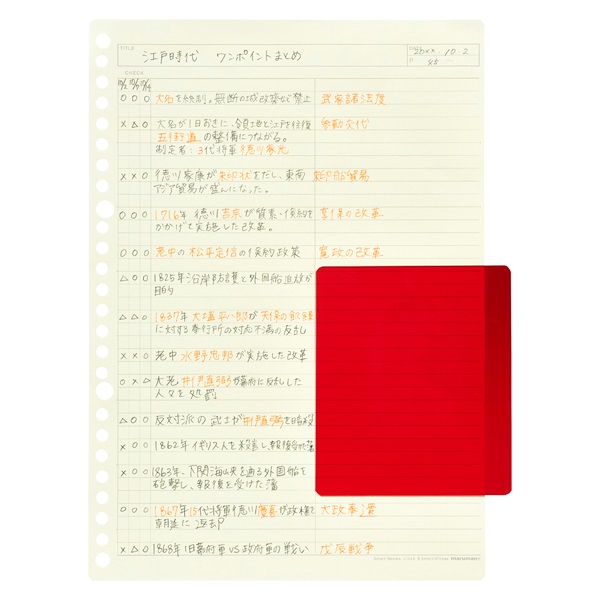 TITLE 江戸時代 ワンポイントまとめ 20XX. 10. 2
P. 45
CHECK
○ ○ ○ 大名を統制。無断の城改築など禁止 武家諸法度
× △ ○ 大名が1日おきに、領地と江戸を往復 参勤交代
五街道の整備につながる。
制定者：3代将軍 徳川家光
× × ○ 徳川家康が朱印状をだし、東南 朱印船貿易
アジア貿易が盛んになった。
○ ○ ○ 1716年 徳川吉宗が質素・倹約を 享保の改革
かかげて実施した改革。
○ ○ ○ 老中の松平定信の倹約政策 寛政の改革
△ ○ ○ 1825年 沿岸防備と外国船追放が
目的
△ △ ○ 1837年 大塩平八郎が天保の飢饉
に対する奉行所の対応不満の反乱
× × ○ 老中 水野忠邦が実施した改革
○ × △ 大老 井伊直弼が幕府に反乱した
人々を処罰
△ ○ ○ 反対派の武士が井伊直弼を暗殺
× ○ ○ 1862年 イギリス人を殺害し、報復合 藩
× ○ ○ 1863年、下関海峡を通る外国船を
砲撃し、報復を受けた藩
○ ○ ○ 1867年 15代将軍徳川慶喜が政権を 大政奉還
朝廷に返去?
× △ ○ 1868年 旧幕府軍VS政府軍の戦い 戊辰戦争